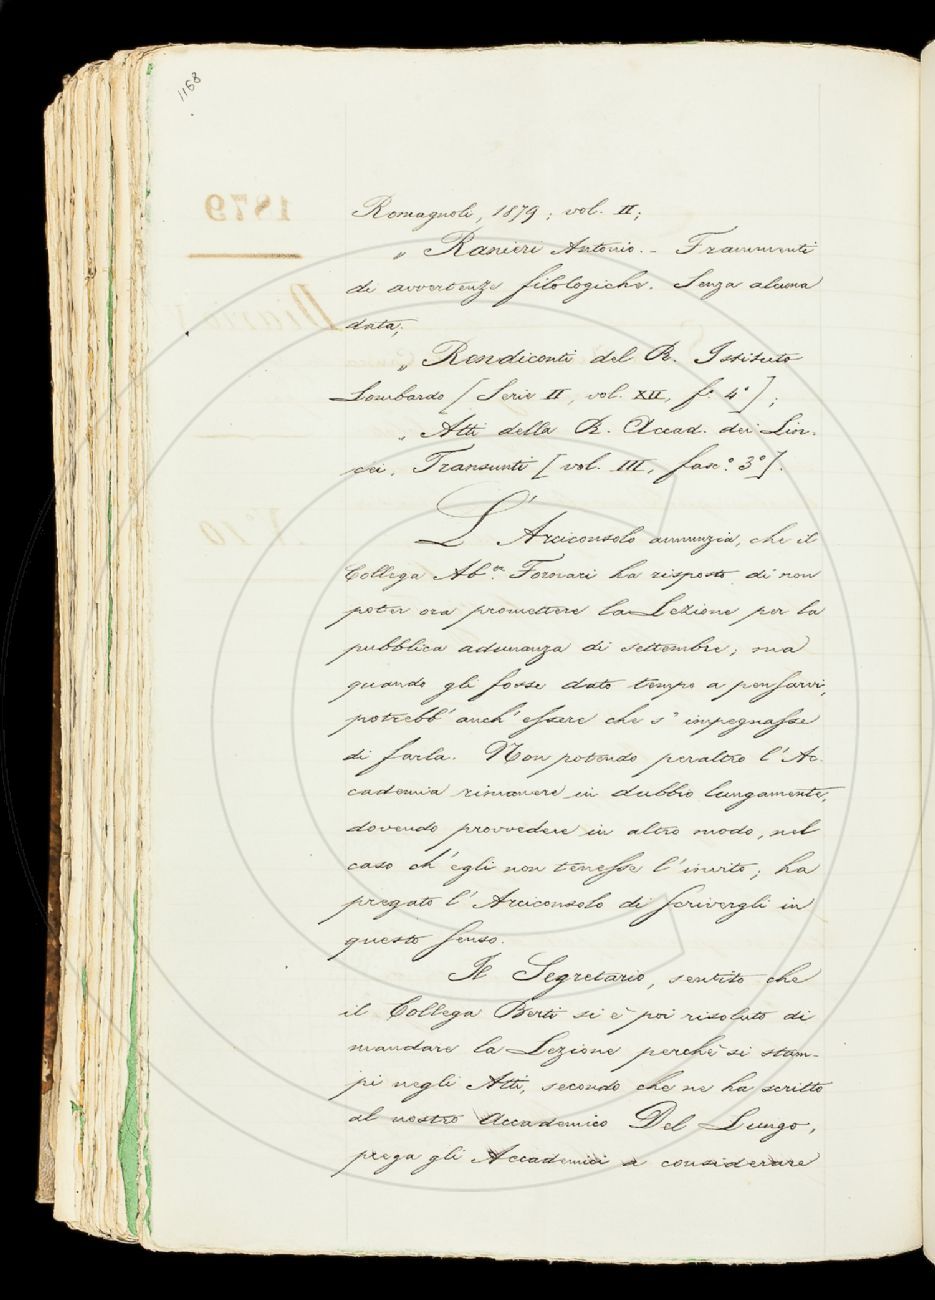 1168
Romagnoli, 1879; vol. II;
„ Ranieri Antonio. - Frammenti
di avvertenze filologiche. Senza alcuna
data;
„ Rendiconti del R. Istituto
Lombardo [Serie II, vol. XII, f.° 4°];
„ Atti della R. Accad. dei Lin-
cei. Transunti [vol. III, fasc.° 3°].
L' Arciconsolo annunzia, che il
Collega Ab.te Fornari ha risposto di non
poter ora promettere la Lezione per la
pubblica adunanza di settembre; ma
quando gli fosse dato tempo a pensarvi,
potrebb' anch' essere che s' impegnasse
di farla. Non potendo peraltro l' Ac-
cademia rimanere in dubbio lungamente,
dovendo provvedere in altro modo, nel
caso ch' egli non tenesse l' invito; ha
pregato l' Arciconsolo di scrivergli in
questo senso.
Il Segretario, sentito che
il Collega Berti si è poi risoluto di
mandare la Lezione perchè si stam-
pi negli Atti, secondo che ne ha scritto
al nostro Accademico Del Lungo,
prega gli Accademici a considerare